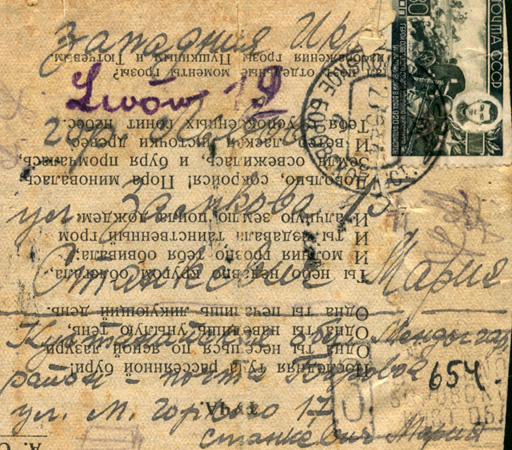 Западния Укр
Lwów 19
гор. Львов
ул. Замкова 15
Станкевич Мария
Кустанайская обл. Мендыгар
район - почта Борова
654.
ул. М. Горького 17
Станкевич Мария
ПОЧТА СССР
30
ТУЧА
Последняя туча рассеянной бури!
Одна ты несешься по ясной лазури,
Одна ты наводишь унылую тень,
Одна ты печалишь ликующий день.
Ты небо недавно кругом облегала,
И молния грозно тебя обвивала;
И ты издавала таинственный гром
И алчную землю поила дождем.
Довольно, сокройся! Пора миновалась,
Земля освежилась, и буря промчалась,
И ветер, лаская листочки древес,
Тебя с успокоенных гонит небес.
отдельные моменты грозы?
изображении грозы Пушкиным и Тютчевым